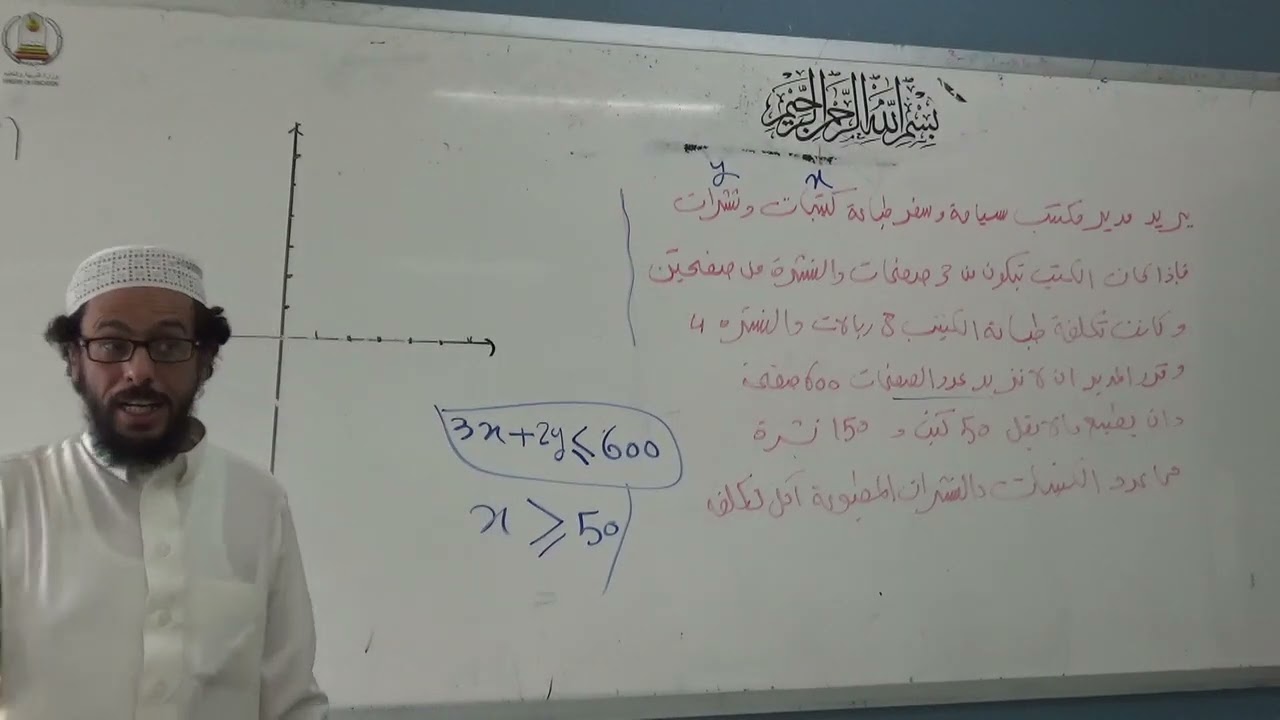 بِسْمِ اللَّهِ الرَّحْمَٰنِ الرَّحِيمِ
x y
يريد مدير مكتب سياحة وسفر طباعة كتيبات ونشرات
فإذا كان الكتيب تتكون من 3 صفحات والنشرة من صفحتين
وكانت تكلفة طباعة الكتيب 8 ريالات والنشرة 4
وقرر المدير ان لا تزيد عدد الصفحات 600 صفحة
وان يطبع مالا يقل 50 كتيب و 150 نشرة
ما عدد الكتيبات والنشرات المطبوعة اقل تكلف
3x+2y≤600
x ≥ 50